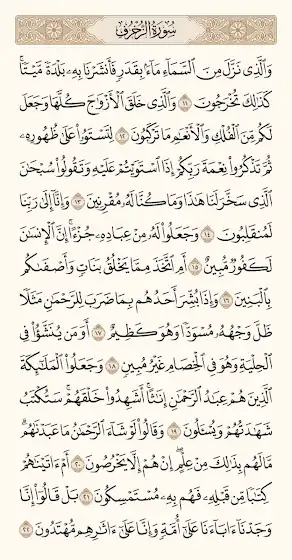 سُورَةُ الزُّخْرُفِ
وَالَّذِي نَزَّلَ مِنَ السَّمَاءِ مَاءً بِقَدَرٍ فَأَنشَرْنَا بِهِ بَلْدَةً مَّيْتًا
كَذَٰلِكَ تُخْرَجُونَ ١١ وَالَّذِي خَلَقَ الْأَزْوَاجَ كُلَّهَا وَجَعَلَ
لَكُم مِّنَ الْفُلْكِ وَالْأَنْعَامِ مَا تَرْكَبُونَ ١٢ لِتَسْتَوُوا عَلَىٰ ظُهُورِهِ
ثُمَّ تَذْكُرُوا نِعْمَةَ رَبِّكُمْ إِذَا اسْتَوَيْتُمْ عَلَيْهِ وَتَقُولُوا سُبْحَانَ
الَّذِي سَخَّرَ لَنَا هَٰذَا وَمَا كُنَّا لَهُ مُقْرِنِينَ ١٣ وَإِنَّا إِلَىٰ رَبِّنَا
لَمُنقَلِبُونَ ١٤ وَجَعَلُوا لَهُ مِنْ عِبَادِهِ جُزْءًا إِنَّ الْإِنسَانَ
لَكَفُورٌ مُّبِينٌ ١٥ أَمِ اتَّخَذَ مِمَّا يَخْلُقُ بَنَاتٍ وَأَصْفَاكُم
بِالْبَنِينَ ١٦ وَإِذَا بُشِّرَ أَحَدُهُم بِمَا ضَرَبَ لِلرَّحْمَٰنِ مَثَلًا
ظَلَّ وَجْهُهُ مُسْوَدًّا وَهُوَ كَظِيمٌ ١٧ أَوَمَن يُنَشَّأُ فِي
الْحِلْيَةِ وَهُوَ فِي الْخِصَامِ غَيْرُ مُبِينٍ ١٨ وَجَعَلُوا الْمَلَائِكَةَ
الَّذِينَ هُمْ عِبَادُ الرَّحْمَٰنِ إِنَاثًا أَشَهِدُوا خَلْقَهُمْ سَتُكْتَبُ
شَهَادَتُهُمْ وَيُسْأَلُونَ ١٩ وَقَالُوا لَوْ شَاءَ الرَّحْمَٰنُ مَا عَبَدْنَاهُم
مَّا لَهُم بِذَٰلِكَ مِنْ عِلْمٍ إِنْ هُمْ إِلَّا يَخْرُصُونَ ٢٠ أَمْ آتَيْنَاهُمْ
كِتَابًا مِّن قَبْلِهِ فَهُم بِهِ مُسْتَمْسِكُونَ ٢١ بَلْ قَالُوا إِنَّا
وَجَدْنَا آبَاءَنَا عَلَىٰ أُمَّةٍ وَإِنَّا عَلَىٰ آثَارِهِم مُّهْتَدُونَ ٢٢